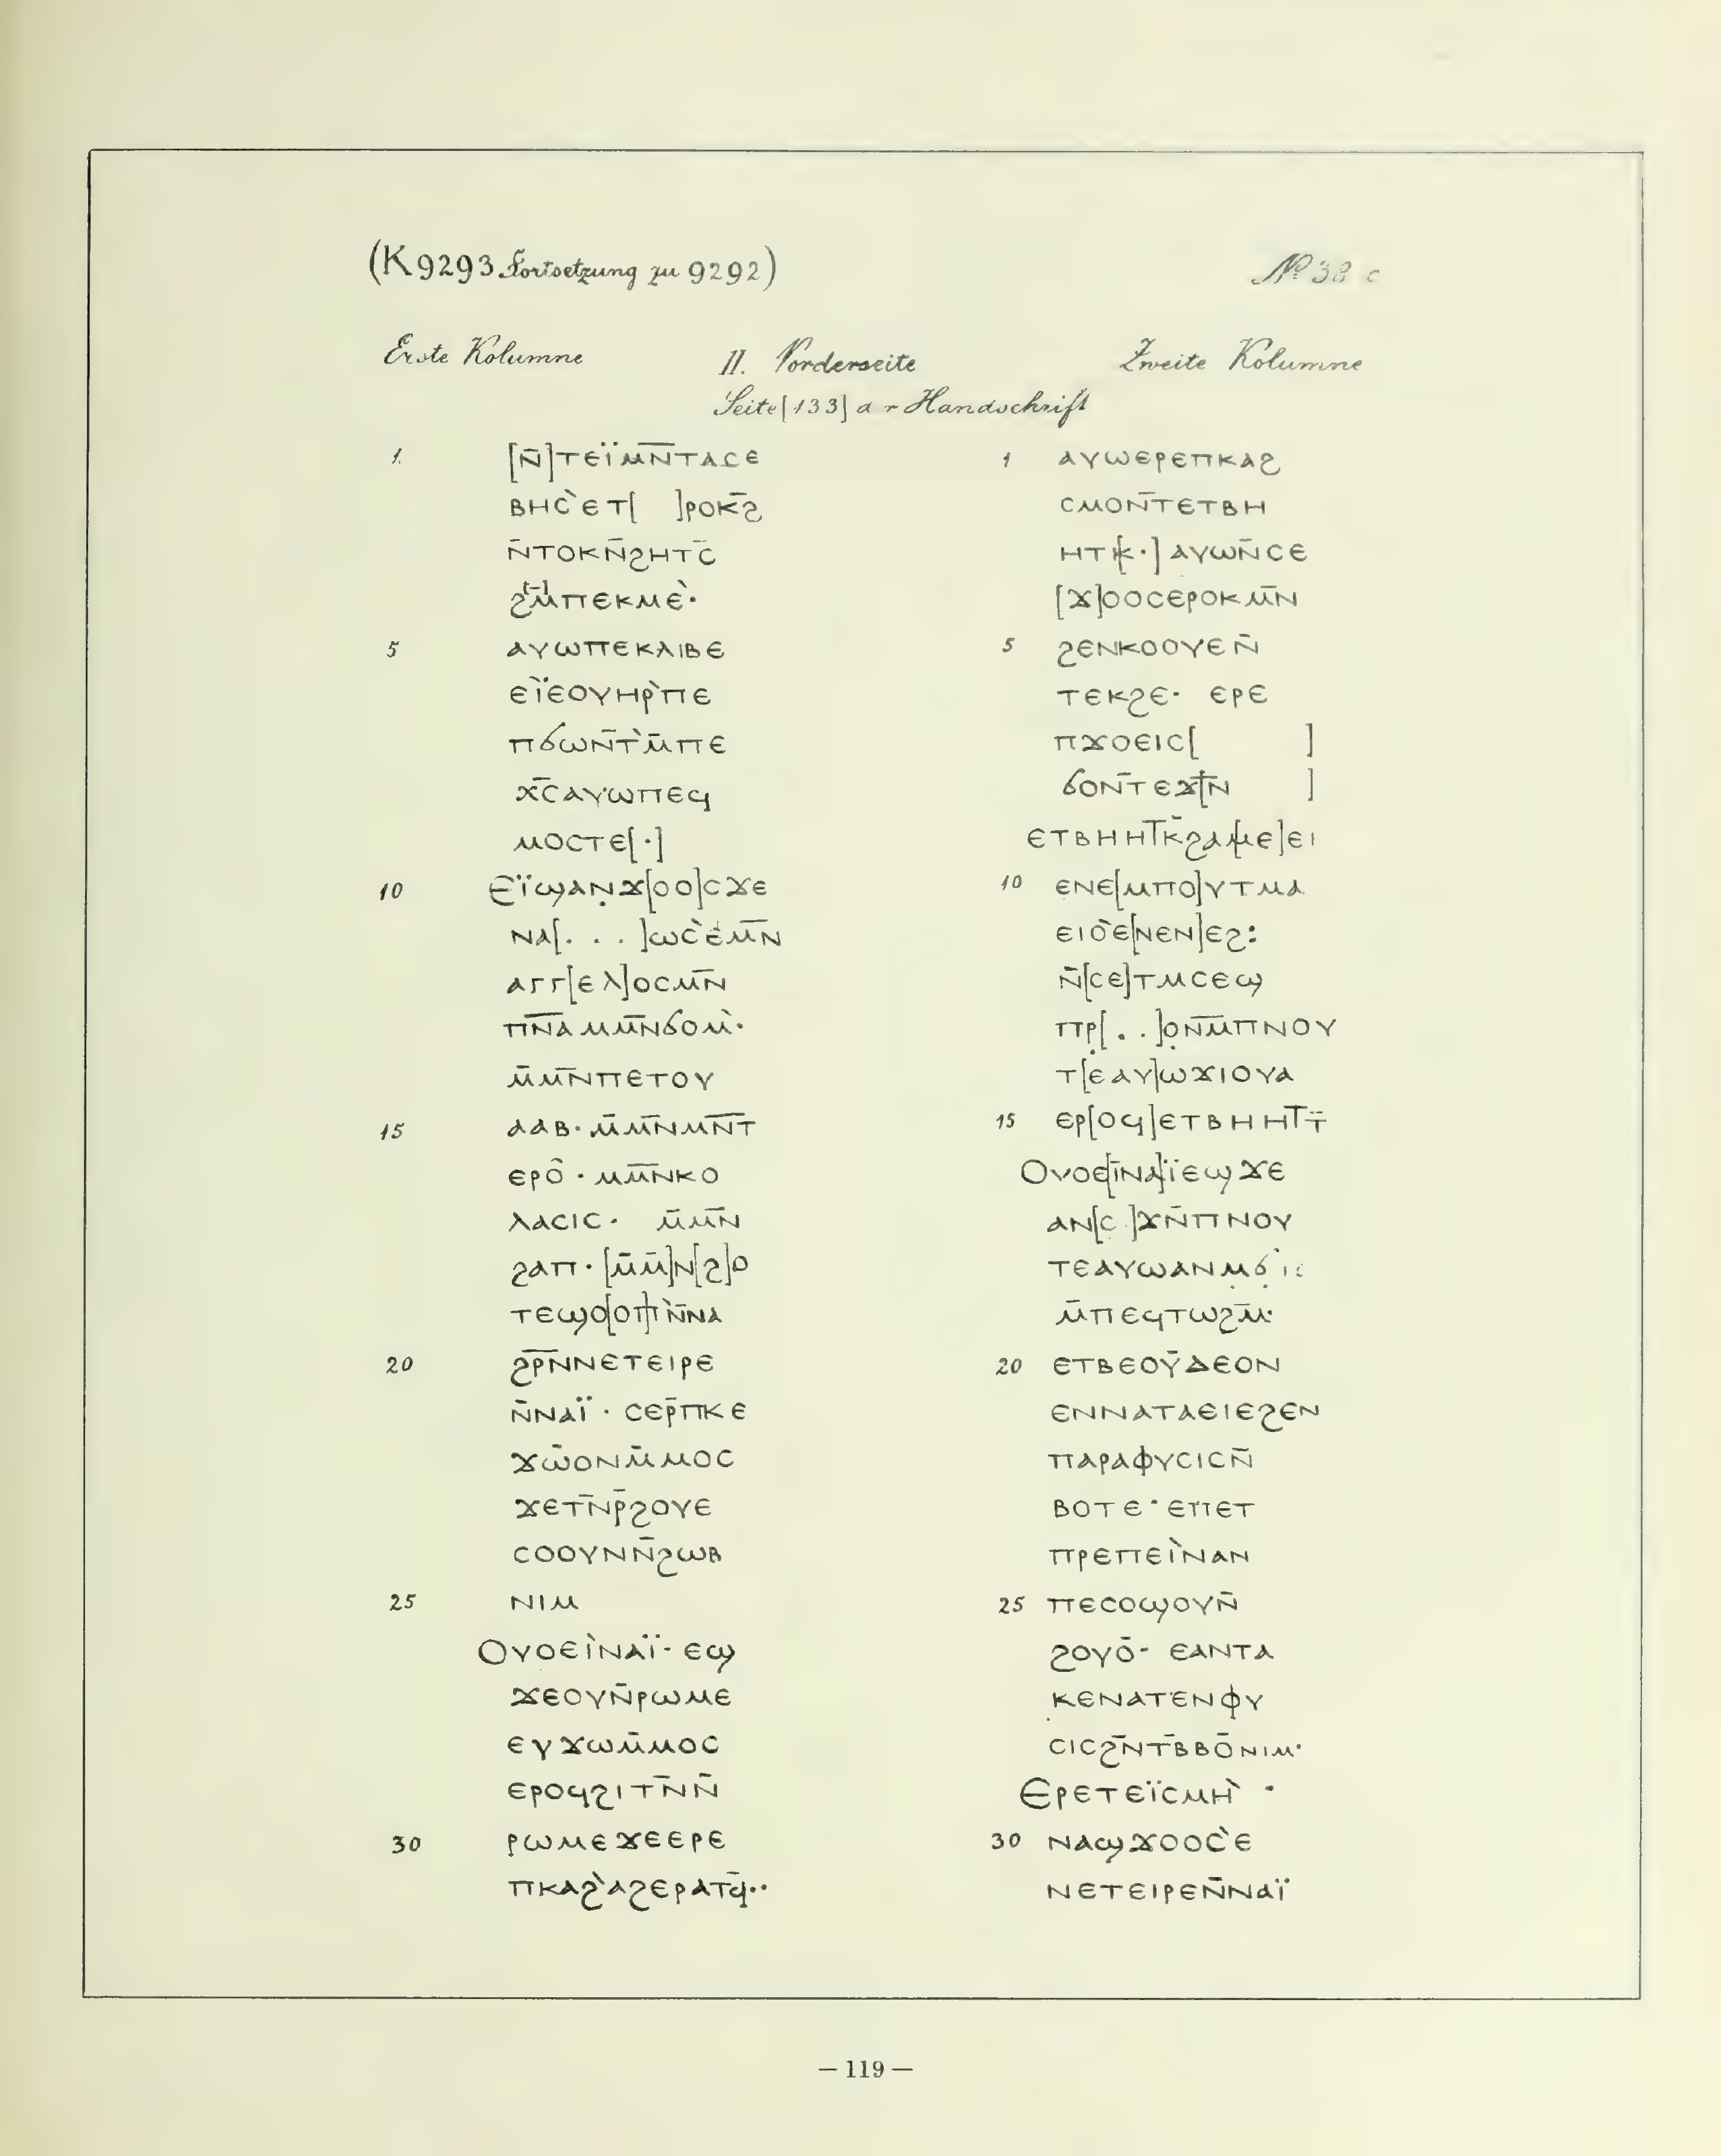 (K 9293 Fortsetzung zu 9292)
№ 38 c
Erste Kolumne
II. Vorderseite
Zweite Kolumne
Seite [133] d r Handschrift
1 [ⲛ̄]ⲧⲉⲓ̈ⲙⲛ̄ⲧⲁⲥⲉ
ⲃⲏⲥ̀ⲉⲧ[ ]ⲣⲟⲕϩ̄
ⲛ̄ⲧⲟⲕⲛ̄ϩⲏⲧⲥ̄
ϩⲙ̄ⲡⲉⲕⲙⲉ̀·
5 ⲁⲩⲱⲡⲉⲕⲗⲓⲃⲉ
ⲉⲓ̈ⲉⲟⲩⲏⲣ̀ⲡⲉ
ⲡϭⲱⲛ̄ⲧ̀ⲙ̄ⲡⲉ
ⲭ̄ⲥⲁⲩⲱⲡⲉϥ
ⲙⲟⲥⲧⲉ[·]
10 ⲉⲓ̈ϣⲁⲛϫ[ⲟⲟ]ⲥϫⲉ
ⲛⲁ[. . .]ⲱⲥ̀ⲉ̀ⲙⲛ̄
ⲁⲅⲅ[ⲉⲗ]ⲟⲥⲙⲛ̄
ⲡⲛ̄ⲁⲙⲙⲛ̄ϭⲟⲙ̀·
ⲙ̄ⲙⲛ̄ⲡⲉⲧⲟⲩ
15 ⲁⲁⲃ·ⲙ̄ⲙⲛ̄ⲙⲛ̄ⲧ
ⲉⲣⲟ̂·ⲙⲙⲛ̄ⲕⲟ
ⲗⲁⲥⲓⲥ· ⲙ̄ⲙⲛ̄
ϩⲁⲡ·[ⲙ̄ⲙ̄]ⲛ[ϩ]ⲟ
ⲧⲉϣⲟ[ⲟⲡ]ⲛ̀ⲛ̄ⲁ
20 ϩⲣ̄ⲛ̄ⲛⲉⲧⲉⲓⲣⲉ
ⲛ̄ⲛⲁⲓ̈·ⲥⲉⲣ̄ⲡⲕⲉ
ϫⲱ̄ⲟⲛⲙ̄ⲙⲟⲥ
ϫⲉⲧⲛ̄ⲣ̄ϩⲟⲩⲉ
ⲥⲟⲟⲩⲛⲛ̄ϩⲱⲃ
25 ⲛⲓⲙ
ⲟⲩⲟⲉⲓ̀ⲛⲁⲓ̈·ⲉϣ
ϫⲉⲟⲩⲛ̄ⲣⲱⲙⲉ
ⲉⲩϫⲱⲙ̄ⲙⲟⲥ
ⲉⲣⲟϥϩⲓⲧⲛ̄ⲛ̄
30 ⲣⲱⲙⲉϫⲉⲉⲣⲉ
ⲡⲕⲁϩ̀ⲁϩⲉⲣⲁⲧϥ̄··
1 ⲁⲩⲱⲉⲣⲉⲡⲕⲁϩ
ⲥⲙⲟⲛ̄ⲧⲉⲧⲃⲏ
ⲏⲧ[ⲕ·]ⲁⲩⲱⲛ̄ⲥⲉ
[ϫ]ⲟⲟⲥⲉⲣⲟⲕⲙⲛ̄
5 ϩⲉⲛⲕⲟⲟⲩⲉⲛ̄
ⲧⲉⲕϩⲉ· ⲉⲣⲉ
ⲡϫⲟⲉⲓⲥ[ ]
ϭⲟⲛ̄ⲧⲉϫ[ⲛ ]
ⲉⲧⲃⲏⲏⲧⲕ̄ϩⲁ[ⲙⲉ]ⲉⲓ
10 ⲉⲛⲉ[ⲙⲡⲟ]ⲩⲧⲙⲁ
ⲉⲓⲟ̀ⲉ[ⲛⲉⲛ]ⲉϩ:
ⲛ̄[ⲥⲉ]ⲧⲙⲥⲉϣ
ⲡⲣ[. .]ⲟⲛ̄ⲙ̄ⲡⲛⲟⲩ
ⲧ[ⲉⲁⲩ]ⲱϫⲓⲟⲩⲁ
15 ⲉⲣ[ⲟϥ]ⲉⲧⲃⲏⲏⲧⲧ̄
ⲟⲩⲟⲉ[ⲓⲛⲁ]ⲓ̈ⲉϣϫⲉ
ⲁⲛ[ⲥ ]ϫⲛ̄ⲡⲛⲟⲩ
ⲧⲉⲁⲩⲱⲁⲛⲙ
ⲙ̄ⲡⲉϥⲧⲱϩⲙ̄·
20 ⲉⲧⲃⲉⲟⲩ̄ⲇⲉⲟⲛ
ⲉⲛⲛⲁⲧⲁⲉⲓⲉϩⲉⲛ
ⲡⲁⲣⲁⲫⲩⲥⲓⲥⲛ̄
ⲃⲟⲧⲉ·ⲉⲡⲉⲧ
ⲡⲣⲉⲡⲉⲓ̀ⲛⲁⲛ
25 ⲡⲉⲥⲟϣⲟⲩⲛ̄
ϩⲟⲩⲟ̄· ⲉⲁⲛⲧⲁ
ⲕⲉⲛⲁⲧⲉⲛⲫⲩ
ⲥⲓⲥϩⲛ̄ⲧⲃ̄ⲃⲟ̄ⲛⲓⲙ·
ⲉⲣⲉⲧⲉⲓ̈ⲥⲙⲏ̀ ·
30 ⲛⲁϣϫⲟⲟⲥ̀ⲉ
ⲛⲉⲧⲉⲓⲣⲉⲛ̄ⲛⲁⲓ̈
— 119 —